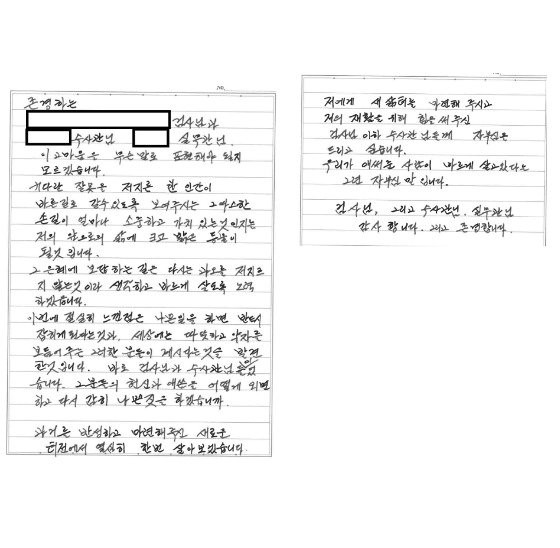 존경하는
검사님과
수사관님 실무관님.
이 고마움은 무슨 말로 표현해야 될지
모르겠습니다.
커다란 잘못은 저지른 한 인간이
바른길로 갈수 있도록 보여주시는 그 따스한
손길이 얼마나 소중하고 가치 있는 것인지는
저의 앞으로의 삶에 크고 밝은 등불이
될것 입니다.
그 은혜에 보답하는 길은 다시는 과오를 저지르
지 않는것이라 생각하고 바르게 살도록 노력
하겠습니다.
이번에 절실히 느낀점은 나쁜일을 하면 반드시
잡히게 된다는것과, 세상에는 따뜻하고 약자를
보듬어주는 그러한 분들이 계시다는것을 발견
한것입니다. 바로 검사님과 수사관님
습니다. 그분들의 헌신과 애쓰는 어떻게 외면
하고 다시 감히 나쁜짓은 하겠습니까.
과거를 반성하고 마련해주신 새로운
터전에서 열심히 한번 살아보겠습니다.
저에게 새 삶터를 마련해 주시고
저의 재활은 위해 힘을 써주신
검사님 이하 수사관님들께 자부심은
드리고 싶습니다.
우리가 애써준 사람이 바르게 살고있다는
그런 자부심 말 입니다.
검사님, 그리고 수사관님, 실무관님
감사 합니다. 그리고 존경합니다.